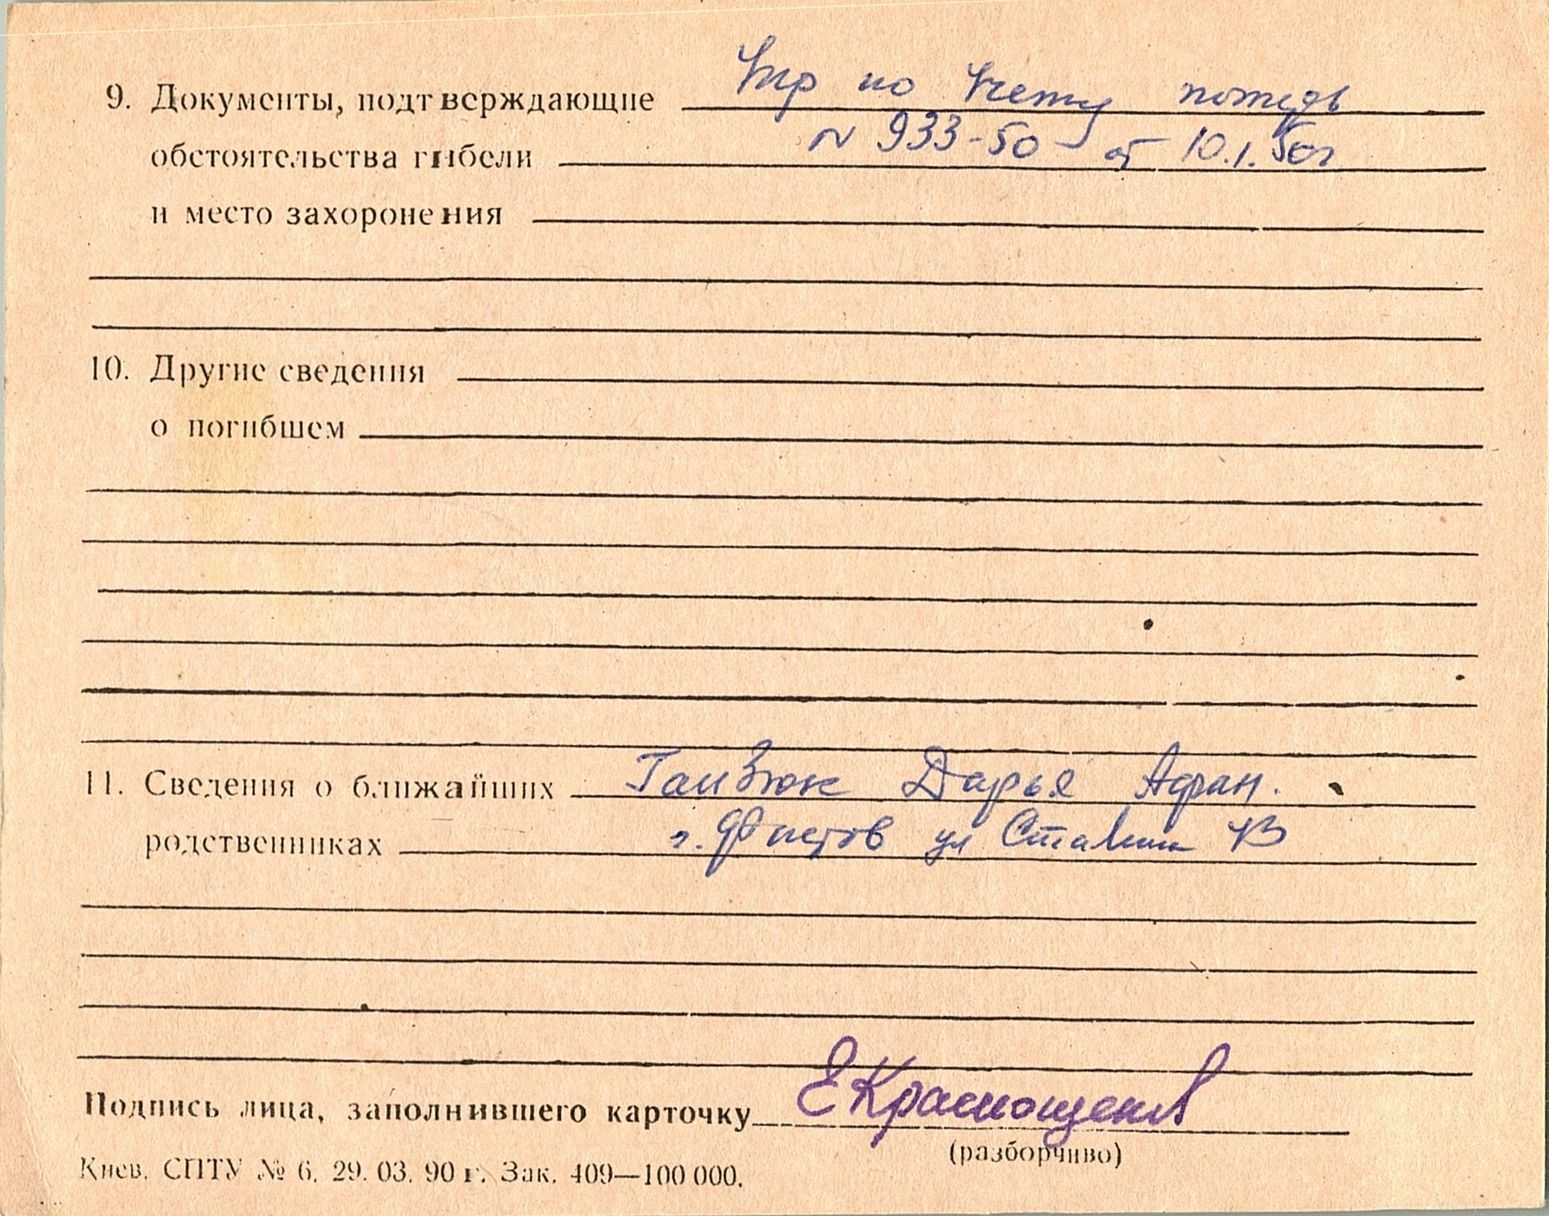 9. Документы, подтверждающие Упр по Учету потерь
обстоятельства гибели № 933-50 от 10.1.50г
и место захоронения
10. Другие сведения
о погибшем
11. Сведения о ближайших Гайзюк Дарья Афан.
родственниках г. Фастов ул Сталина 43
Подпись лица, заполнившего карточку ЕКраснощек
(разборчиво)
Киев. СПТУ № 6. 29. 03. 90 г. Зак. 409—100 000.